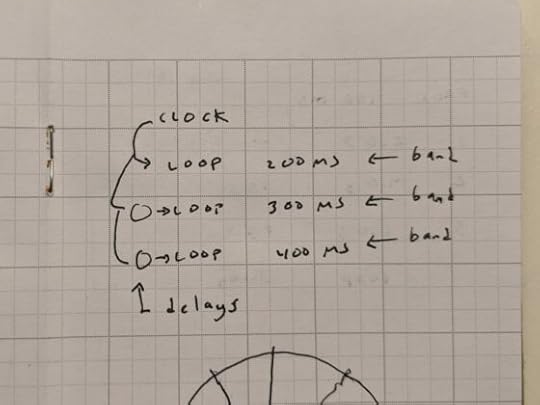 CLOCK
LOOP 200 MS ← band
→ LOOP 300 MS ← band
→ LOOP 400 MS ← band
delays